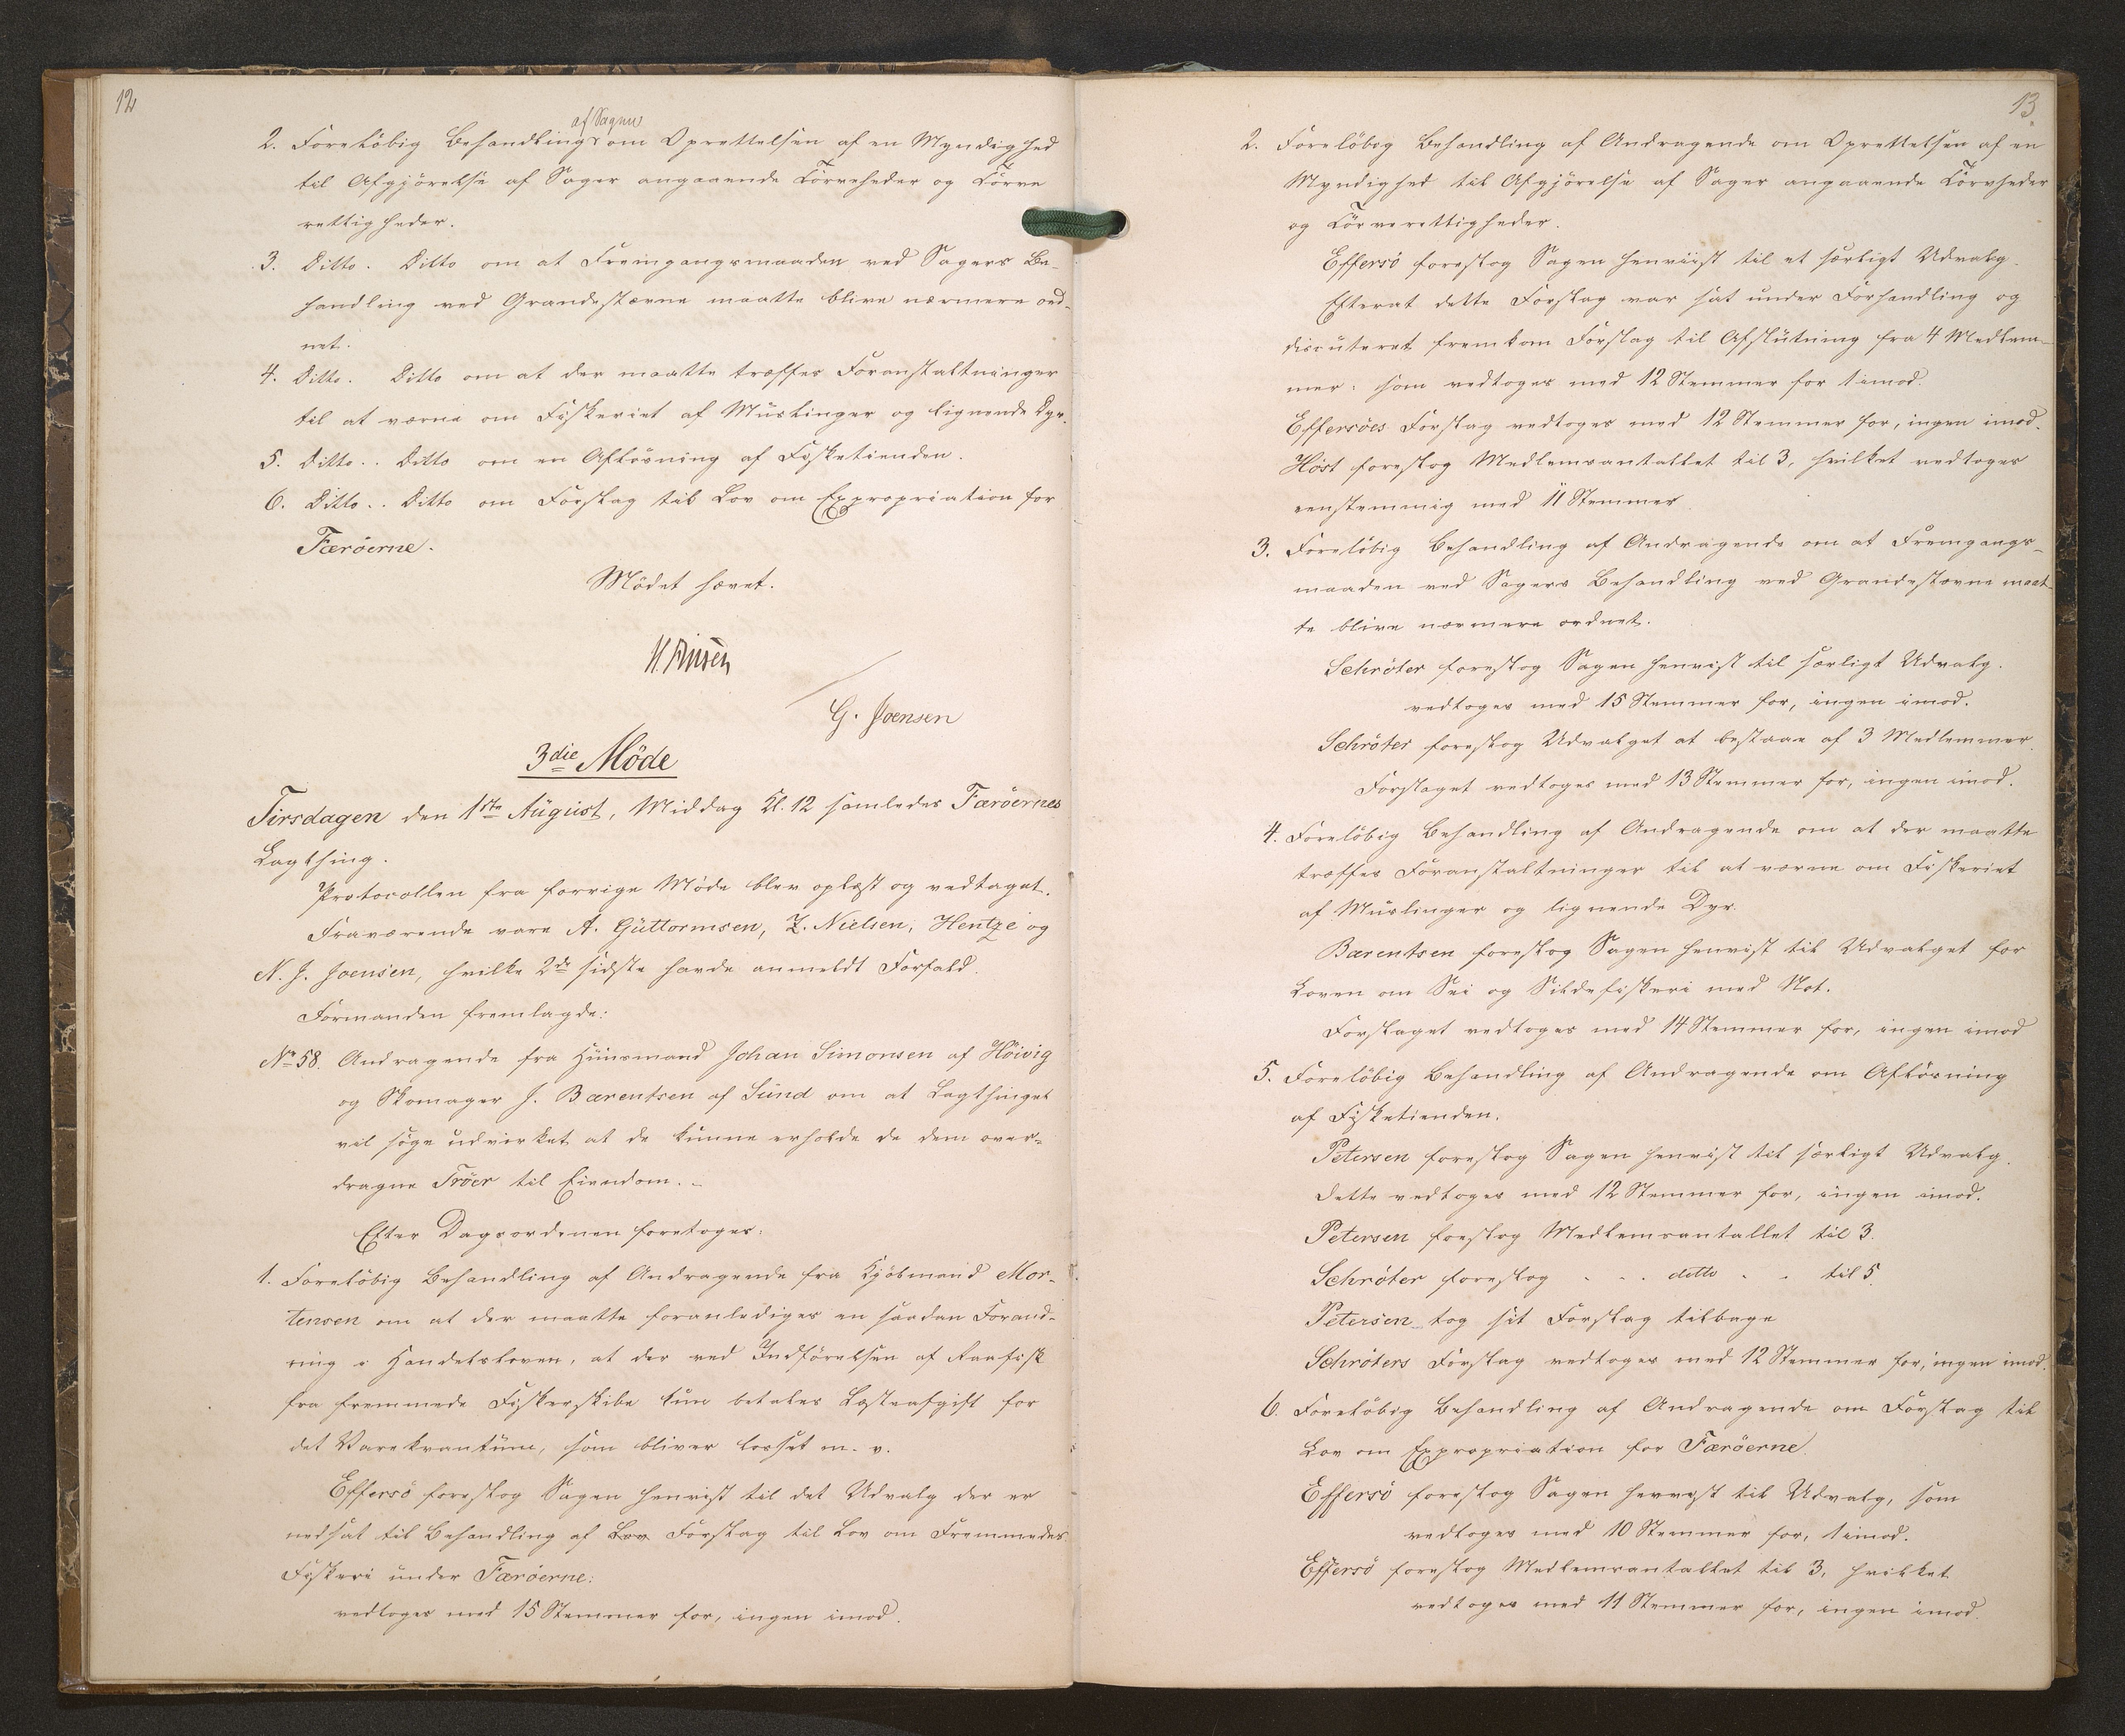 12
af Sagen
2. Foreløbig Behandling om Oprettelsen af en Myndighed
til Afgjörelse af Sager angaaende Törveheder og Törve
rettigheder.
3. Ditto. Ditto om at Fremgangsmaaden ved Sagers Be-
handling ved Grandestævne maatte blive nærmere ord-
net.
4. Ditto. Ditto om at der maatte træffes Foranstaltninger
til at værne om Fiskeriet af Muslinger og lignende Dyr.
5. Ditto.. Ditto om en Aflösning af Fisketienden.
6. Ditto.. Ditto om Forslag til Lov om Expropriation for
Færöerne.
Mödet hævet.
H. Finsen
G. Joensen
3die Möde
Tirsdagen den 1ste August, Middag Kl. 12 samledes Færöernes
Lagthing.
Protocollen fra forrige Möde blev oplæst og vedtaget.
Fraværende vare A. Guttormsen, Z. Nielsen, Hentze og
N. J. Joensen, hvilke 2de sidste havde anmeldt Forfald.
Formanden fremlagde:
No 58. Andragende fra Huusmand Johan Simonsen af Höivig
og Skomager J. Bærentsen af Sund om at Lagthinget
vil söge udvirket at de kunne erholde de dem over-
dragne Tröer til Eiendom. -
Efter Dagsordenen foretoges:
1. Forelöbig Behandling af Andragende fra Kjöbmand Mor-
tensen om at der maatte foranlediges en saadan Forand-
ring i Handelsloven, at der ved Indförelsen af Raafisk
fra fremmede Fiskerskibe kun betales Læsteafgift for
det Varekvantum, som bliver losset m. v.
Effersö foreslog Sagen henvist til det Udvalg der er
nedsat til Behandling af Lov Forslag til Lov om Fremmedes
Fiskeri under Færöerne:
vedtoges med 15 Stemmer for, ingen imod.
13.
2. Forelöbig Behandling af Andragende om Oprettelsen af en
Myndighed til Afgjörelse af Sager angaaende Törveheder
og Törverettigheder.
Effersö foreslog Sagen henviist til et særligt Udvalg.
Efterat dette Forslag var sat under Forhandling og
discuteret fremkom Forslag til Afslutning fra 4 Medlem-
mer: som vedtoges med 12 Stemmer for 1 imod.
Effersöes Forslag vedtoges med 12 Stemmer for, ingen imod.
Höst foreslog Medlemsantallet til 3, hvilket vedtoges
eenstemmig med 11 Stemmer
3. Forelöbig Behandling af Andragende om at Fremgangs-
maaden ved Sagers Behandling ved Grandestævne maat-
te blive nærmere ordnet.
Schröter foreslog Sagen henvist til særligt Udvalg.
vedtoges med 15 Stemmer for, ingen imod.
Schröter foreslog Udvalget at bestaae af 3 Medlemmer.
Forslaget vedtoges med 13 Stemmer for, ingen imod.
4. Forelöbig Behandling af Andragende om at der maatte
træffes Foranstaltninger til at værne om Fiskeriet
af Muslinger og lignende Dyr.
Bærentsen foreslog Sagen henvist til Udvalget for
Loven om Sei og Sildefiskeri med Not.
Forslaget vedtoges med 14 Stemmer for, ingen imod
5. Forelöbig Behandling af Andragende om Aflösning
af Fisketienden.
Petersen foreslog Sagen henvist til særligt Udvalg.
Dette vedtoges med 12 Stemmer for, ingen imod.
Petersen foeslog Medlemsantallet til 3.
Schröter foreslog . . . ditto . . til 5.
Petersen tog sit Forslag tilbage
Schröters Forslag vedtoges med 12 Stemmer for, ingen imod.
6. Forelöbig Behandling af Andragende om Forslag til
Lov om Expropriation for Færöerne.
Effersö foreslog Sagen henvist til Udvalg, som
vedtoges med 10 Stemmer for, 1 imod.
Effersö foreslog Medlemsantallet til 3, hvilket
vedtoges med 11 Stemmer for, ingen imod.